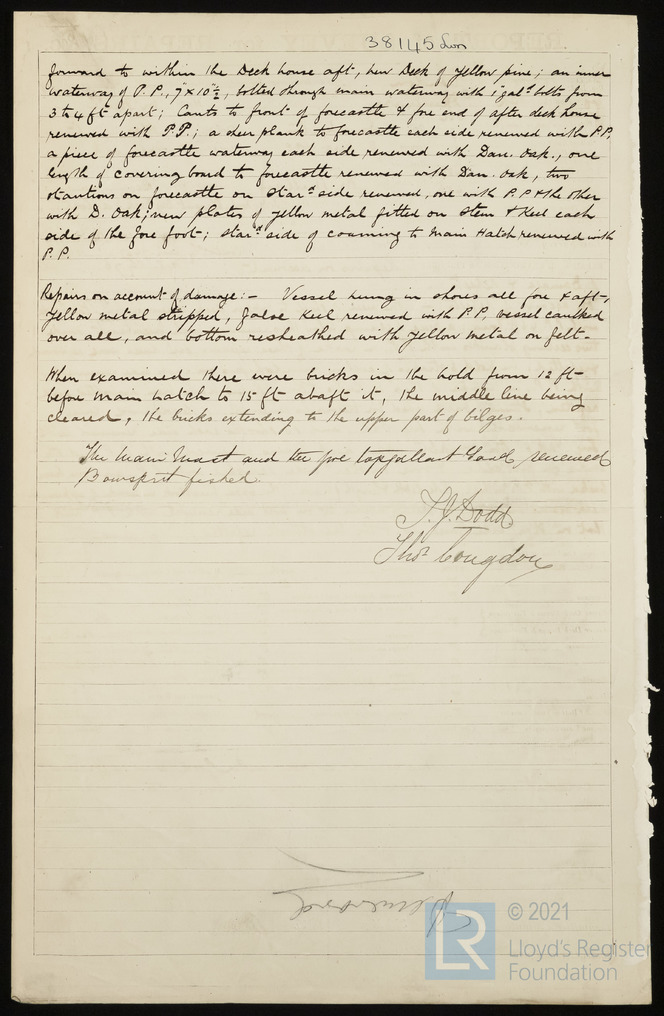 38145 Lon
forward to within the Deck house aft, new Deck of yellow pine; an inner
waterway of P.P., 7" x 10"½, bolted through main waterway with 1" galᵈ bolts from
3 to 4 ft apart; Cants to front of forecastle & fore end of after deck house
renewed with P.P.; a sheer plank to forecastle each side renewed with P.P.
a piece of forecastle waterway each side renewed with Dan. Oak., one
length of covering board to forecastle renewed with Dan. oak, two
stantions on forecastle on Starᵈ side renewed, one with P.P. & the other
with D. Oak; new plates of yellow metal fitted on Stem & Keel each
side of the fore foot; Starᵈ side of coaming to Main Hatch renewed with
P.P.
Repairs on account of damage:- Vessel hung in shores all fore & aft,
yellow metal stripped, false Keel renewed with P.P, vessel caulked
over all, and bottom resheathed with yellow metal on felt.
When examined there were bricks in the hold from 12 ft
before main hatch to 15 ft abaft it, the middle line being
cleared, the bricks extending to the upper part of bilges.
The Main Mast and the fore topgallant Yard renewed
Bowsprit fished.
T.J. Dodd
Thoˢ Congdon
© 2021
LR
Lloyd's Register
Foundation